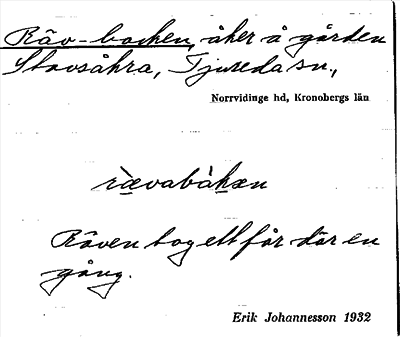 Räv-backen, åker å gården
Stovsåkra, Tjureda sn.,
Norrvidinge hd, Kronobergs län
rævabàkæn
Räven tog ett får där en
gång.
Erik Johannesson 1932